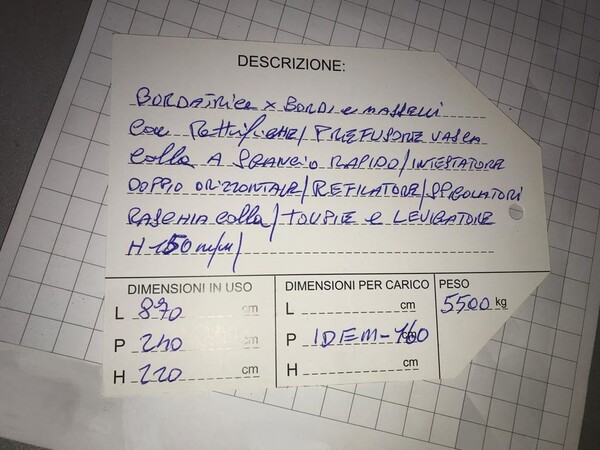 DESCRIZIONE:
BORDATRICE x BORDI e MASSELLI
CON Rettifiche/PREFUSORE VASCA
Colla A SGANCIO RAPIDO/INTESTATORE
DOPPIO ORIZZONTALE/REFILATORE/SPIGOLATORI
RASCHIA colla/TOUPIE e LEVIGATORE
H 150 m/m/
DIMENSIONI IN USO
DIMENSIONI PER CARICO
PESO
L 870 cm
L cm
5500 kg
P 240 cm
P IDEM-160 cm
H 220 cm
H cm